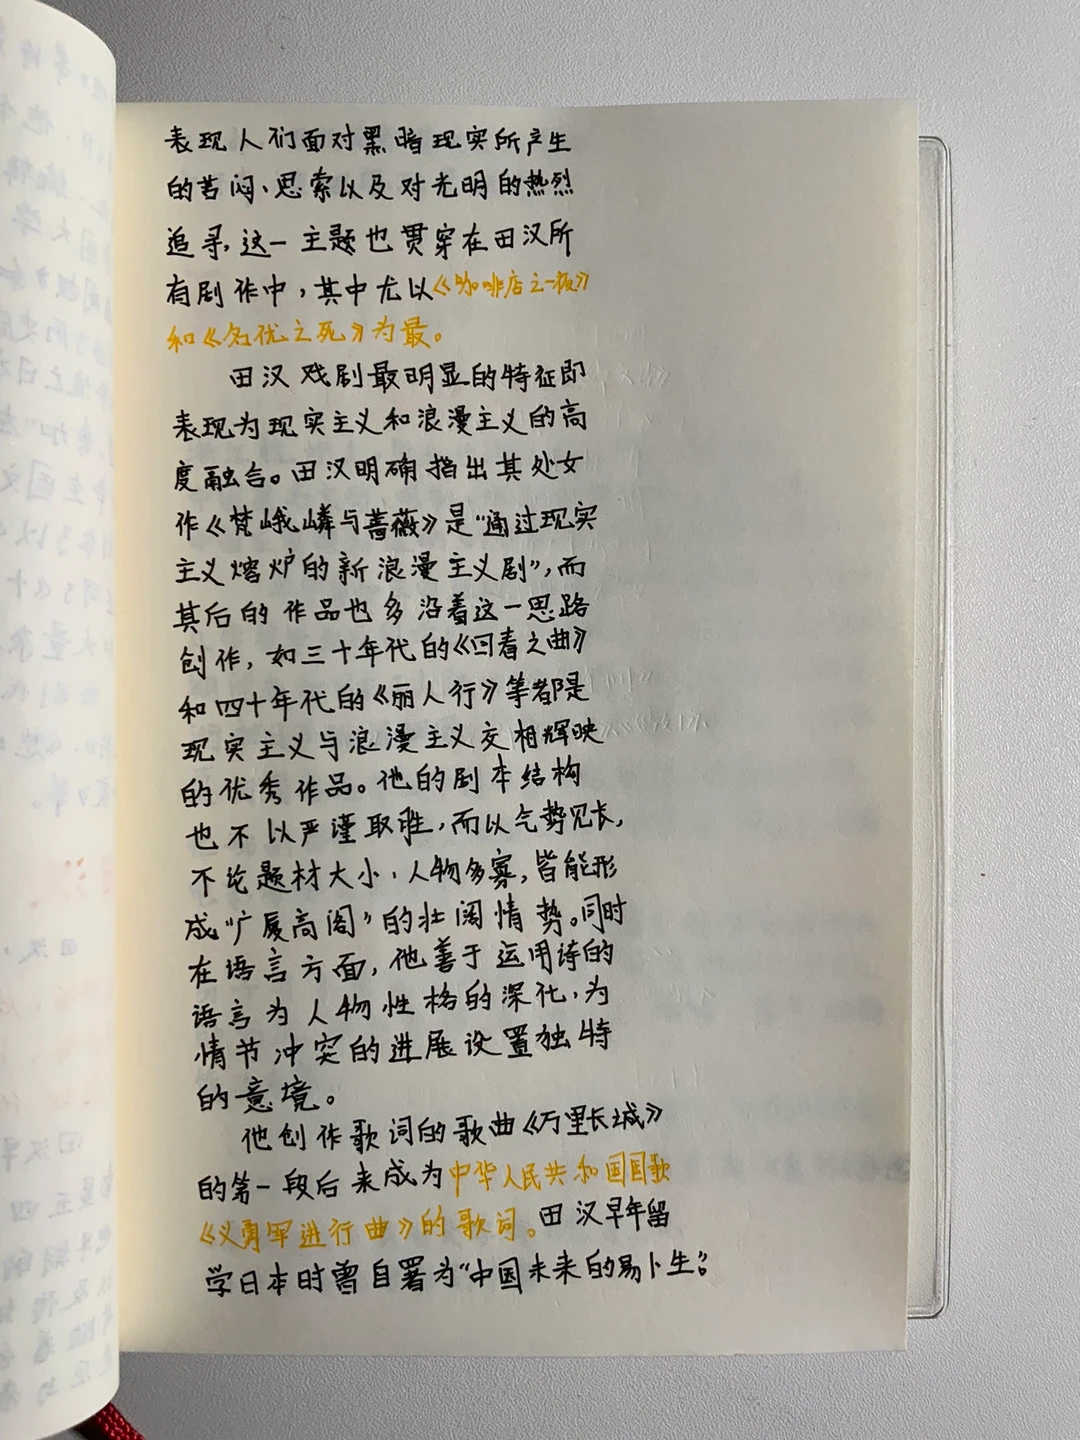 表现人们面对黑暗现实所产生
的苦闷、思索以及对光明的热烈
追寻,这一主题也贯穿在田汉所
有剧作中,其中尤以《咖啡店之一夜》
和《名优之死》为最。
田汉戏剧最明显的特征即
表现为现实主义和浪漫主义的高
度融合。田汉明确指出其处女
作《梵峨嶙与蔷薇》是“通过现实
主义熔炉的新浪漫主义剧”,而
其后的作品也多沿着这一思路
创作,如三十年代的《回春之曲》
和四十年代的《丽人行》等都是
现实主义与浪漫主义交相辉映
的优秀作品。他的剧本结构
也不以严谨取胜,而以气势见长,
不论题材大小、人物多寡,皆能形
成“广厦高阁”的壮阔情势。同时
在语言方面,他善于运用诗的
语言为人物性格的深化,为
情节冲突的进展设置独特
的意境。
他创作歌词的歌曲《万里长城》
的第一段后来成为中华人民共和国国歌
《义勇军进行曲》的歌词。田汉早年留
学日本时曾自署为“中国未来的易卜生”。